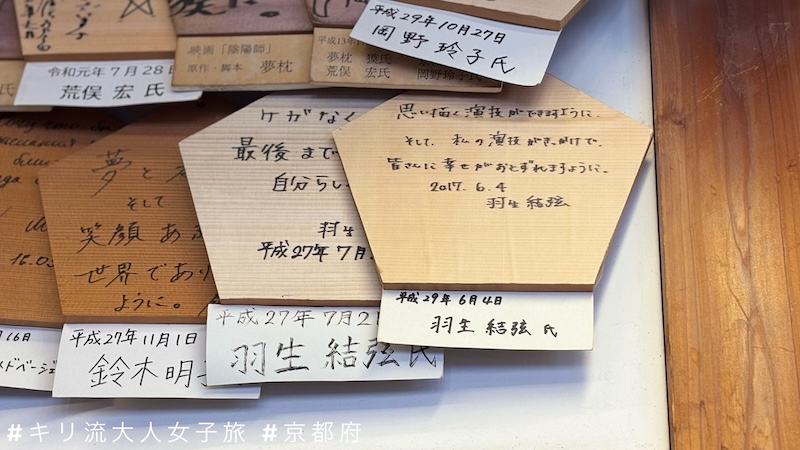 平成29年10月27日
岡野 玲子 氏
映画「陰陽師」
原作・脚本 夢枕
平成13年
夢枕 獏氏
荒俣 宏氏
岡野玲子氏
令和元年7月28日
荒俣 宏 氏
思い描く演技ができますように。
そして、私の演技がきっかけで、
皆さんに幸せがおとずれますように。
2017. 6. 4
羽生 結弦
平成29年 6月4日
羽生 結弦 氏
ケガなく
最後まで
自分らし
羽生
平成27年 7月
平成27年 7月2
羽生 結弦 氏
夢と
そして
笑顔 あ
世界であり
ように。
平成27年11月1日
鈴木明子
16.03
16日
メドベージェ
#キリ流大人女子旅 #京都府